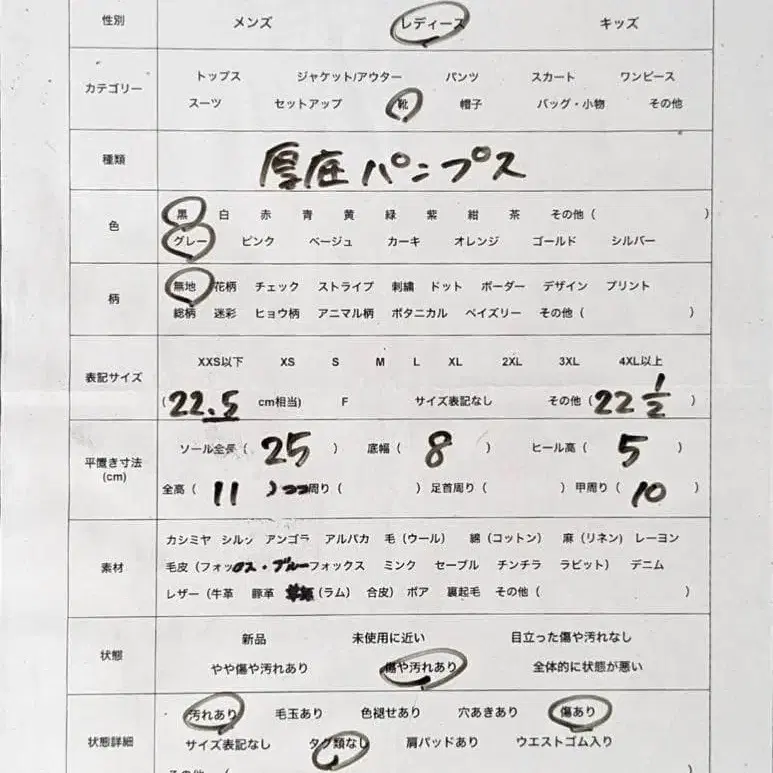 性別 メンズ レディース キッズ
カテゴリー トップス ジャケット/アウター パンツ スカート ワンピース
スーツ セットアップ 靴 帽子 バッグ・小物 その他
種類 厚底パンプス
色 黒 白 赤 青 黄 緑 紫 紺 茶 その他 ( )
グレー ピンク ベージュ カーキ オレンジ ゴールド シルバー
柄 無地 花柄 チェック ストライプ 刺繍 ドット ボーダー デザイン プリント
総柄 迷彩 ヒョウ柄 アニマル柄 ボタニカル ペイズリー その他 ( )
表記サイズ XXS以下 XS S M L XL 2XL 3XL 4XL以上
(22.5 cm相当) F サイズ表記なし その他 (22 1/2)
平置き寸法 (cm) ソール全長 (25) 底幅 (8) ヒール高 (5)
全高 (11) 周り ( ) 足首周り ( ) 甲周り (10)
素材 カシミヤ シルク アンゴラ アルパカ 毛 (ウール) 綿 (コットン) 麻 (リネン) レーヨン
毛皮 (フォックス・ブルーフォックス ミンク セーブル チンチラ ラビット) デニム
レザー (牛革 豚革 (ラム) 合皮) ボア 裏起毛 その他 ( )
状態 新品 未使用に近い 目立った傷や汚れなし
やや傷や汚れあり 傷や汚れあり 全体的に状態が悪い
状態詳細 汚れあり 毛玉あり 色褪せあり 穴あきあり 傷あり
サイズ表記なし タグ類なし 肩パッドあり ウエストゴム入り
その他 (